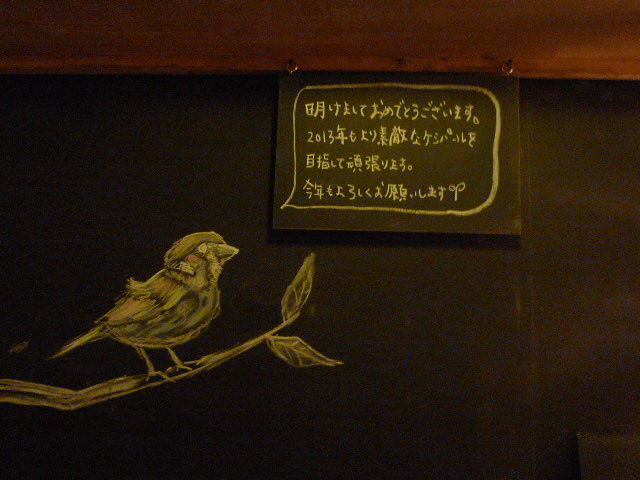 明けましておめでとうございます。
2013年もより素敵なケシパールを
目指して頑張ります。
今年もよろしくお願いします